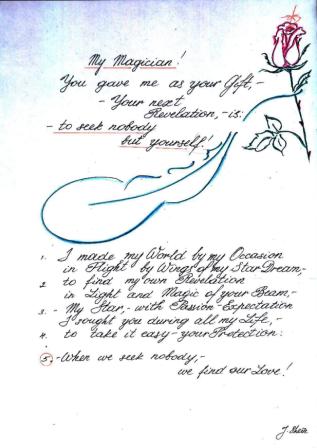 My Magician!
You gave me as your Gift,-
- Your next
Revelation, - is:
- to seek nobody
but yourself!
1. I made my World by my Occasion
in Flight by Wings of my Star Dream,-
2. to find my own Revelation
in Light and Magic of your Beam,-
3. - My Star, - with Passion-Expectation
I sought you during all my Life,-
4. to take it easy - your Protection:
5. - When we seek nobody,-
we find our Love!